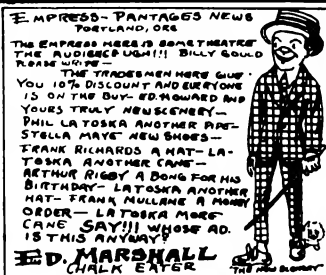 EMPRESS-PANTAGES NEWS
PORTLAND, ORE
THE EMPRESS HERE IS SOME THEATRE
THE AUDIENCE UGH!!! BILLY GOULD
PLEASE WRITE-
THE TRADESMEN HERE GIVE
YOU 10% DISCOUNT AND EVERYONE
IS ON THE BUY- ED. HOWARD AND
YOURS TRULY NEW SCENERY-
PHIL LA TOSKA ANOTHER PIPE-
STELLA MAYE NEW SHOES-
FRANK RICHARDS A HAT- LA-
TOSKA ANOTHER CANE-
ARTHUR RIGBY A BONG FOR HIS
BIRTHDAY- LA TOSKA ANOTHER
HAT- FRANK MULLANE A MONEY
ORDER- LA TOSKA MORE
CANE SAY!!! WHOSE AD.
IS THIS ANYWAY?
ED. MARSHALL
CHALK EATER
THE NEW